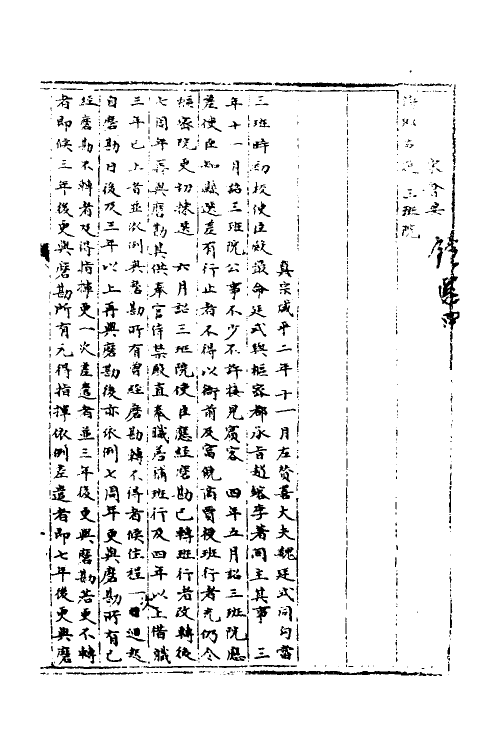 宋會要
三班院
真宗咸平二年十一月左贊善大夫魏廷式同勾當
三班時初校使臣殿最命廷式與樞密都承旨趙鎔李著同主其事 三
年十一月詔三班院公事不少不許接見賓客 四年五月詔三班院應
差使臣如縣選差有行止者不得以衙前及富饒商賈授班行者充仍令
樞密院更切揀選 六月詔三班院使臣應經磨勘已轉班行者改轉後
七周年再與磨勘其供奉官侍禁殿直奉職吾補班行及四年以上借職
三年已上者並依例與磨勘所有曾經磨勘轉不得者候住程一次迴起
自磨勘日後及三年以上再與磨勘後亦依例七周年更與磨勘所有已
經磨勘不轉者及得指揮更一次差遣者並三年後更與磨勘若更不轉
者即候三年後更與磨勘所有元得指揮依例差遣者即七年後更與磨